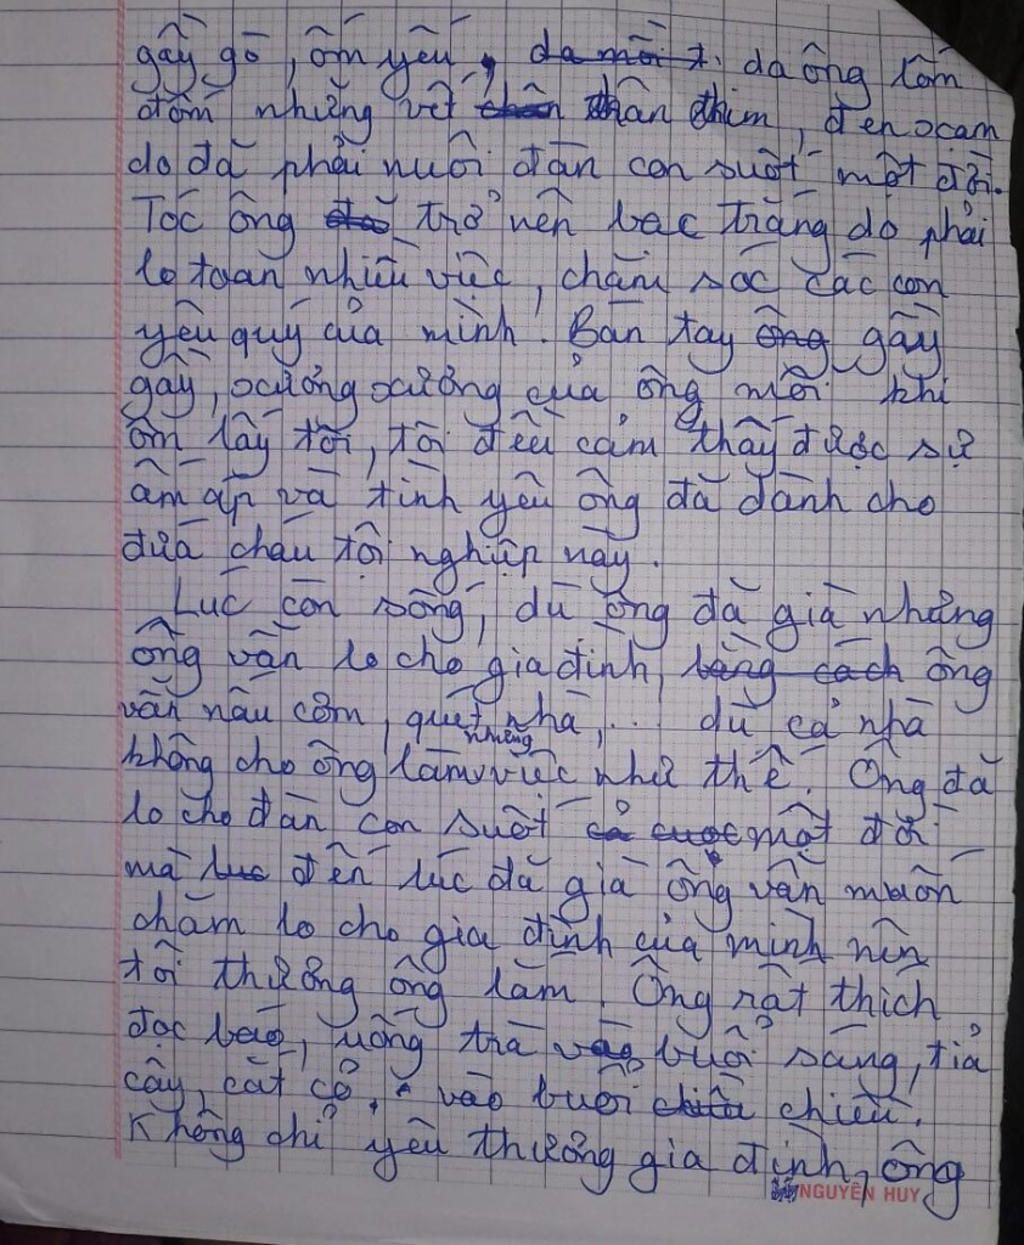 gầy gò, ốm yếu, da mồi t. da ông lốm
đốm những vết chân thân thim, đen xạm
do đã phải nuôi đàn con suốt một đời.
Tóc ông đã trở nên bạc trắng do phải
lo toan nhiều việc, chăm sóc các con
yêu quý của mình. Bàn tay ông gầy
gầy, xương xương của ông mỗi khi
ôm lấy tôi, tôi đều cảm thấy được sự
ấm áp và tình yêu ông đã dành cho
đứa cháu tội nghiệp này.
Lúc còn sống, dù ông đã già nhưng
ông vẫn lo cho gia đình, bằng cách ông
vẫn nấu cơm, quét nhà,... dù cả nhà
những
không cho ông làm việc như thế. Ông đã
lo cho đàn con suốt cả cuộc một đời
mà lúc đến lúc đã già ông vẫn muốn
chăm lo cho gia đình của mình nên
tôi thương ông lắm. Ông rất thích
đọc báo, uống trà vào buổi sáng, tỉa
cây, cắt cỏ, vào buổi chiều chiều.
Không chỉ yêu thương gia đình, ông
NGUYÊN HUY